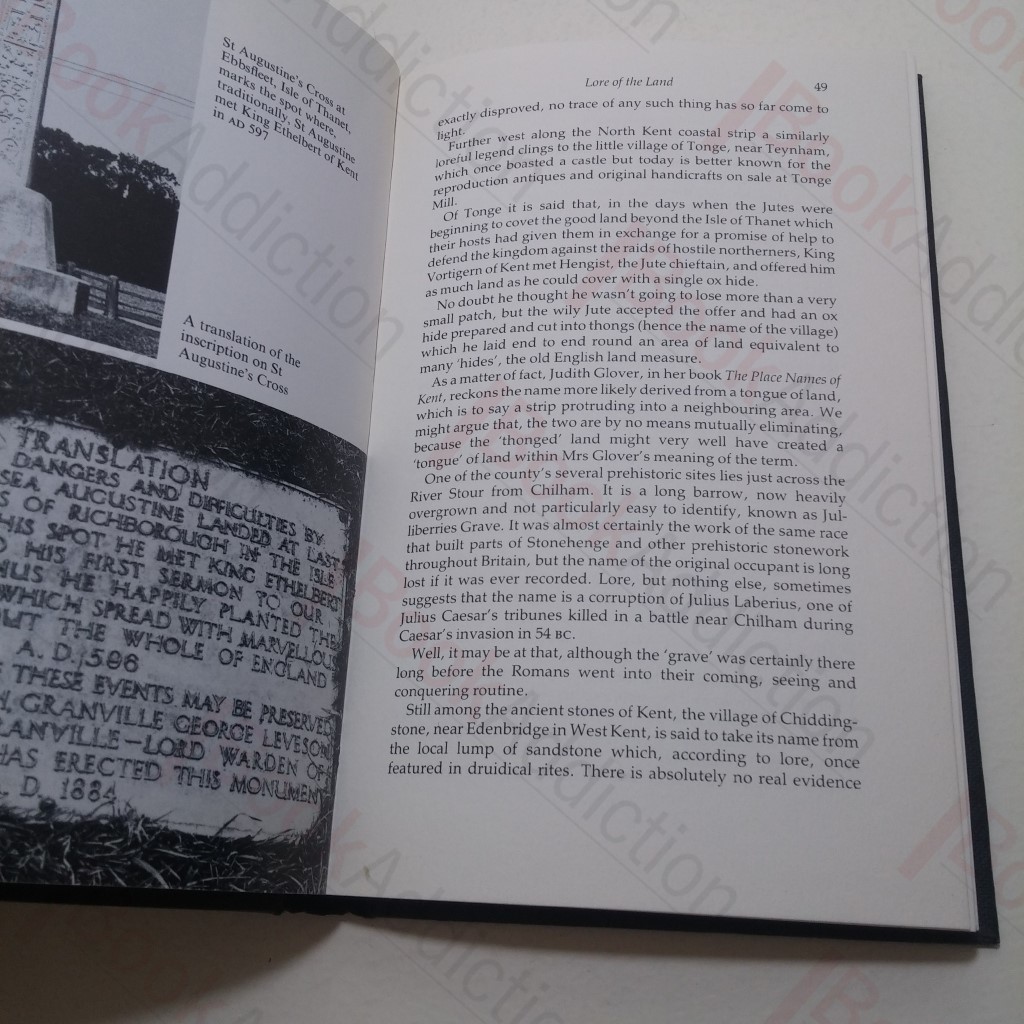 St Augustine's Cross at
Ebbsfleet, Isle of Thanet,
marks the spot where,
traditionally, St Augustine
met King Ethelbert of Kent
in AD 597
A translation of the
inscription on St
Augustine's Cross
TRANSLATION
DANGERS AND DIFFICULTIES BY
SEA AUGUSTINE LANDED AT LAST
OF RICHBOROUGH IN THE ISLE
THIS SPOT HE MET KING ETHELBERT
HIS FIRST SERMON TO OUR
HE HAPPILY PLANTED THE
WHICH SPREAD WITH MARVELLOUS
THE WHOLE OF ENGLAND
A. D. 596
THESE EVENTS MAY BE PRESERVED
GRANVILLE GEORGE LEVESON
LORD WARDEN OF
HAS ERECTED THIS MONUMENT
D. 1884
Lore of the Land 49
exactly disproved, no trace of any such thing has so far come to
light.
Further west along the North Kent coastal strip a similarly
loreful legend clings to the little village of Tonge, near Teynham,
which once boasted a castle but today is better known for the
reproduction antiques and original handicrafts on sale at Tonge
Mill.
Of Tonge it is said that, in the days when the Jutes were
beginning to covet the good land beyond the Isle of Thanet which
their hosts had given them in exchange for a promise of help to
defend the kingdom against the raids of hostile northerners, King
Vortigern of Kent met Hengist, the Jute chieftain, and offered him
as much land as he could cover with a single ox hide.
No doubt he thought he wasn't going to lose more than a very
small patch, but the wily Jute accepted the offer and had an ox
hide prepared and cut into thongs (hence the name of the village)
which he laid end to end round an area of land equivalent to
many 'hides', the old English land measure.
As a matter of fact, Judith Glover, in her book The Place Names of
Kent, reckons the name more likely derived from a tongue of land,
which is to say a strip protruding into a neighbouring area. We
might argue that, the two are by no means mutually eliminating,
because the 'thonged' land might very well have created a
'tongue' of land within Mrs Glover's meaning of the term.
One of the county's several prehistoric sites lies just across the
River Stour from Chilham. It is a long barrow, now heavily
overgrown and not particularly easy to identify, known as Jul-
liberries Grave. It was almost certainly the work of the same race
that built parts of Stonehenge and other prehistoric stonework
throughout Britain, but the name of the original occupant is long
lost if it was ever recorded. Lore, but nothing else, sometimes
suggests that the name is a corruption of Julius Laberius, one of
Julius Caesar's tribunes killed in a battle near Chilham during
Caesar's invasion in 54 BC.
Well, it may be at that, although the 'grave' was certainly there
long before the Romans went into their coming, seeing and
conquering routine.
Still among the ancient stones of Kent, the village of Chidding-
stone, near Edenbridge in West Kent, is said to take its name from
the local lump of sandstone which, according to lore, once
featured in druidical rites. There is absolutely no real evidence
BookAddiction